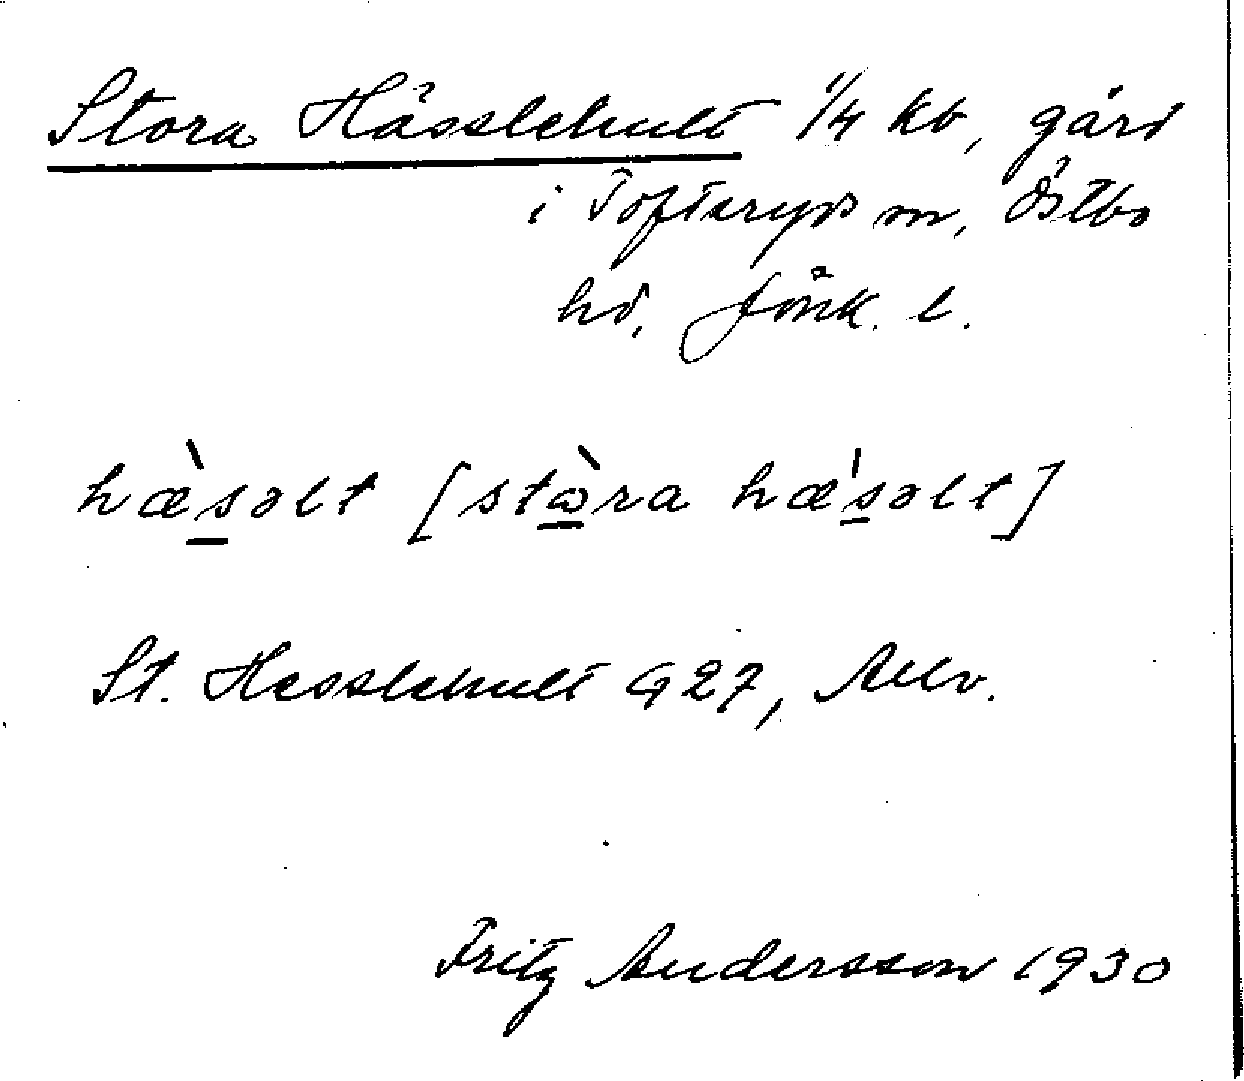 Stora Hässlehult 1/4 kb, gård
i Tofteryds sn, Östbo
hd, Jönk. l.
hæ̀s̲əlt [stɷ̲̀ra hæ's̲əlt]
St. Hesslehult G 27,
Fritz Andersson 1930